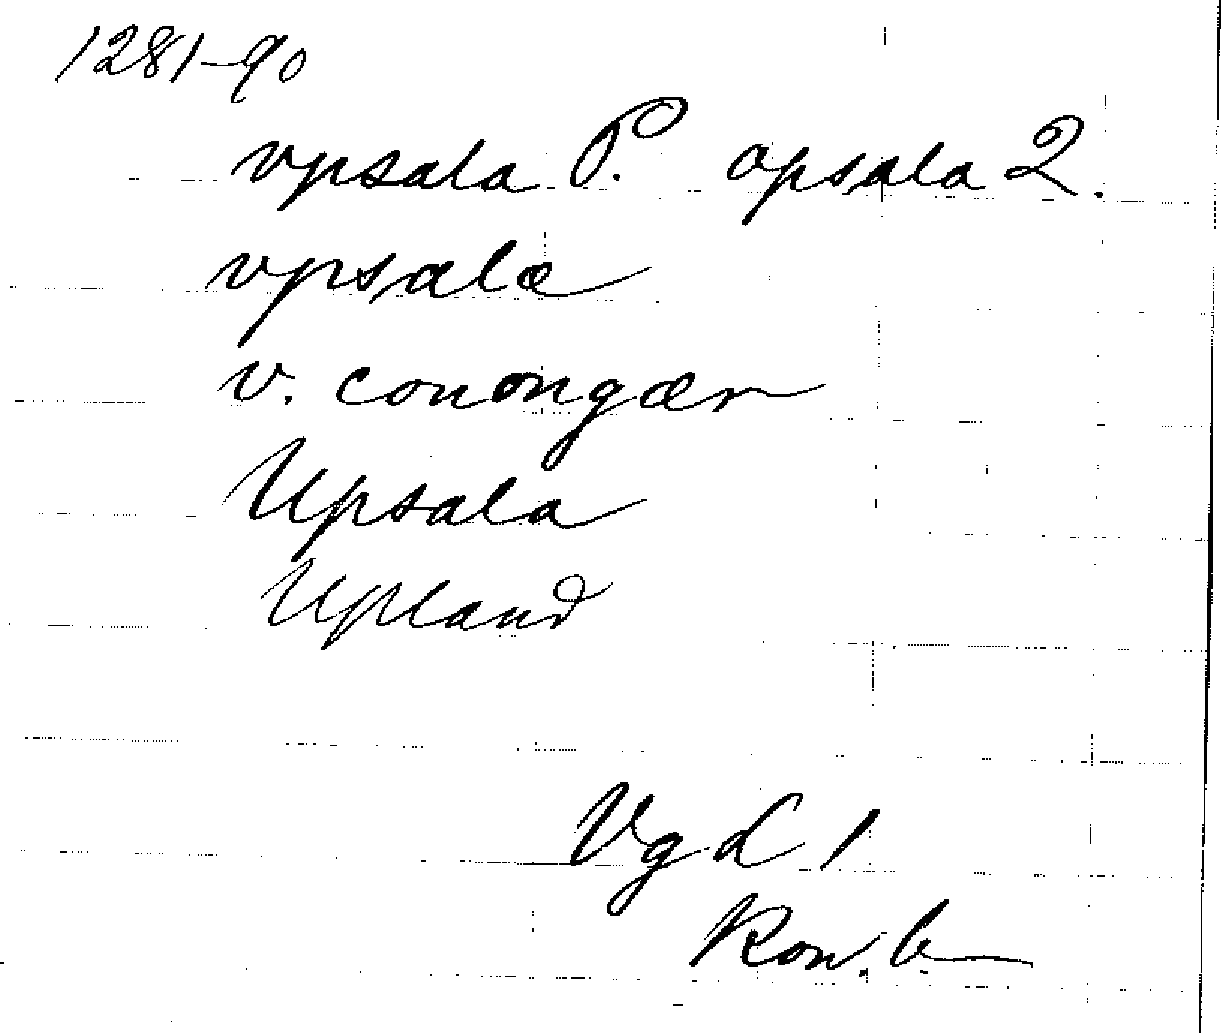 1281-90
vpsala P. opsala 2.
vpsalæ
v. conongær
Upsala
Upland
Vg L 1
Kon. b